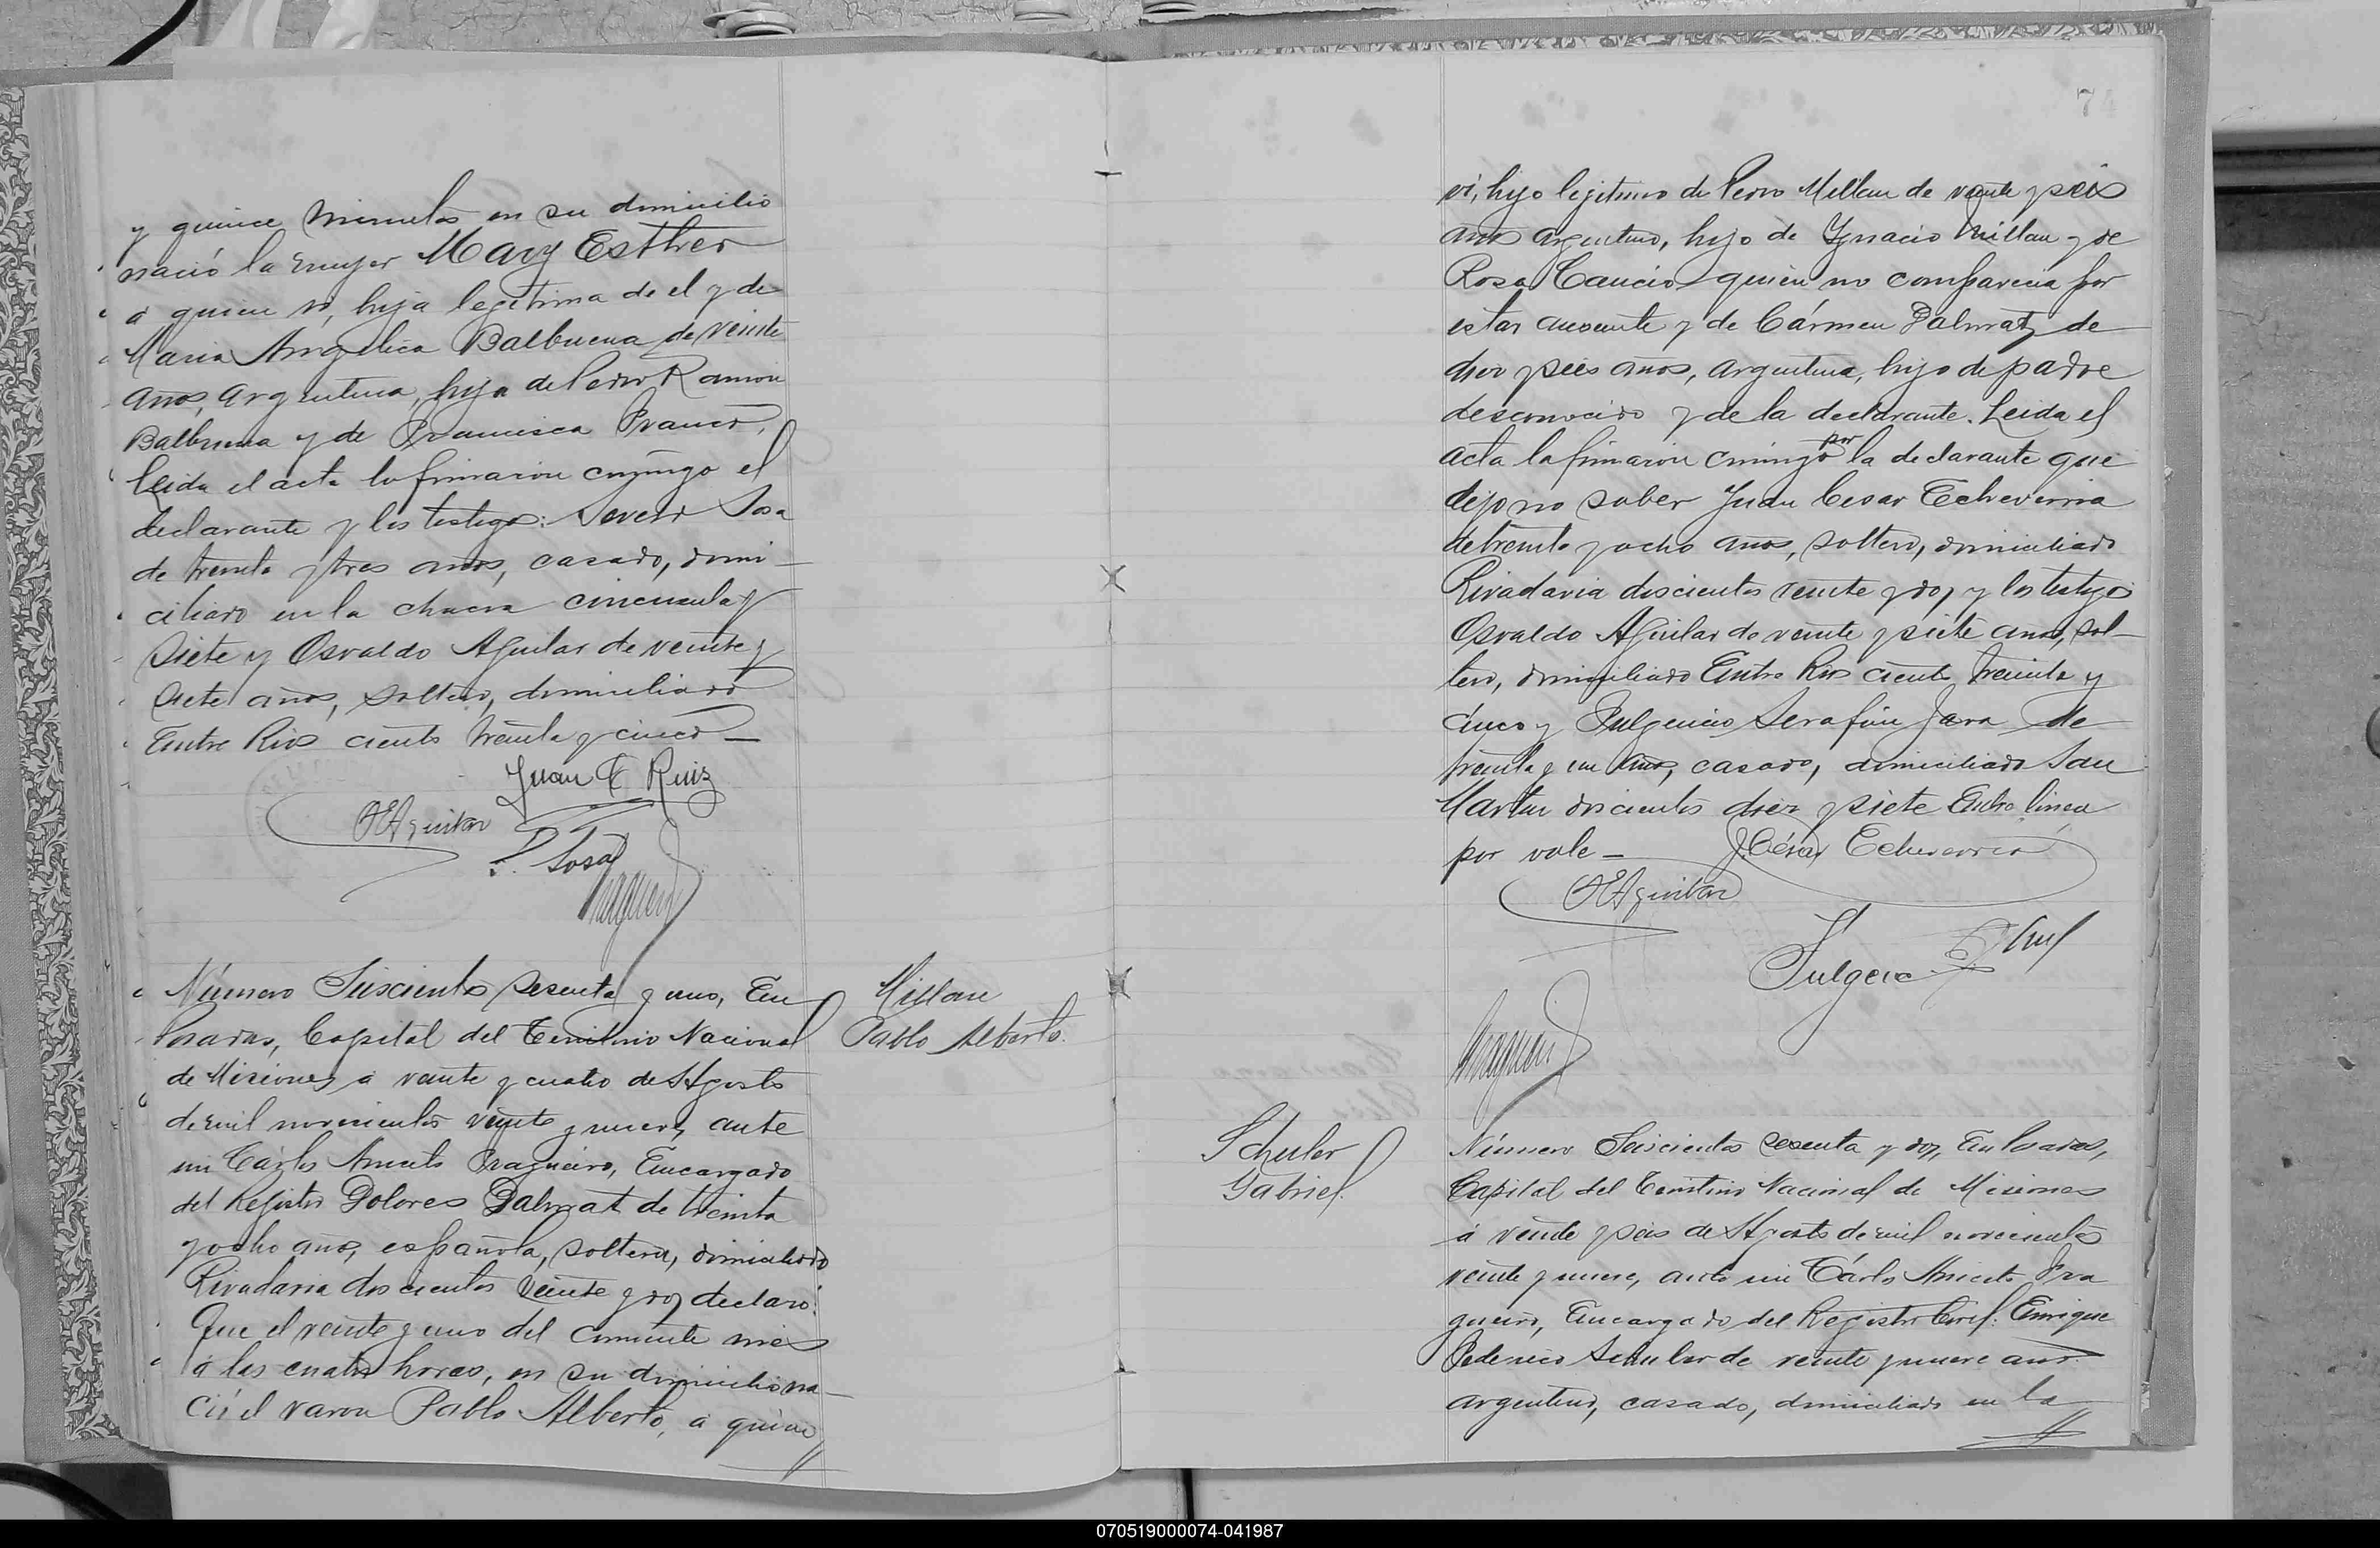 y quince minutos en su domicilio
nació la mujer Mary Esther
a quien vi, hija legitima de el y de
Maria Angelica Balbuena de veinte
años, argentina, hija de Pedro Ramon
Balbuena y de Francisca Franco,
Leida el acta la firmaron conmigo el
declarante y los testigos: Severo Sosa
de treinta y tres años, casado, domi-
ciliado en la chacra cincuenta y
siete y Osvaldo Aguilar de veinte y
siete años, soltero, domiciliado
Entre Rios ciento treinta y cinco_
Juan Ruiz
OEAguilar
S. Sosa
Número Seiscientos sesenta y uno, En
Posadas, Capital del Territorio Nacional
de Misiones a veinte y cuatro de Agosto
de mil novecientos veinte y nueve, ante
mi Carlos Aniceto Fragueiro, Encargado
del Registro Dolores Dalmat de treinta
y ocho años, española, soltera, domiciliado
Rivadavia doscientos veinte y dos declaró:
Que el veinte y uno del corriente mes
á las cuatro horas, en su domicilio na-
ció el varon Pablo Alberto, a quien
Millan
Pablo Alberto.
7
vi, hijo legitimo de Pedro Millan de veinte y seis
años argentino, hijo de Ygnacio Millan y de
Rosa Cancio quien no comparecia por
estar ausente y de Cármen Dalmatz de
diez y seis años, argentina, hijo de padre
desconocido y de la declarante. Leida el
acta la firmaron conmigo por la declarante que
dijo no saber Juan Cesar Echeverria
de treinta y ocho años, soltero, domiciliado
Rivadavia doscientos veinte y dos y los testigos
Osvaldo Aguilar de veinte y siete años, sol-
tero, domiciliado Entre Rios ciento treinta y
cinco y Fulgencio Serafin Jara de
treinta y un años, casado, domiciliado San
Martin doscientos diez y siete Entre linea
por vale_
J. César Echeverria
OEAguilar
Fulgenc
Schuler
Gabriel.
Número Seiscientos sesenta y dos, En Posadas,
Capital del Territorio Nacional de Misiones
á veinte y seis de Agosto de mil novecientos
veinte y nueve, ante mi Cárlos Aniceto Fra
gueiro, Encargado del Registro Civil: Enrique
Federico Schuler de veinte y nueve años
argentino, casado, domiciliado en la
070519000074-041987